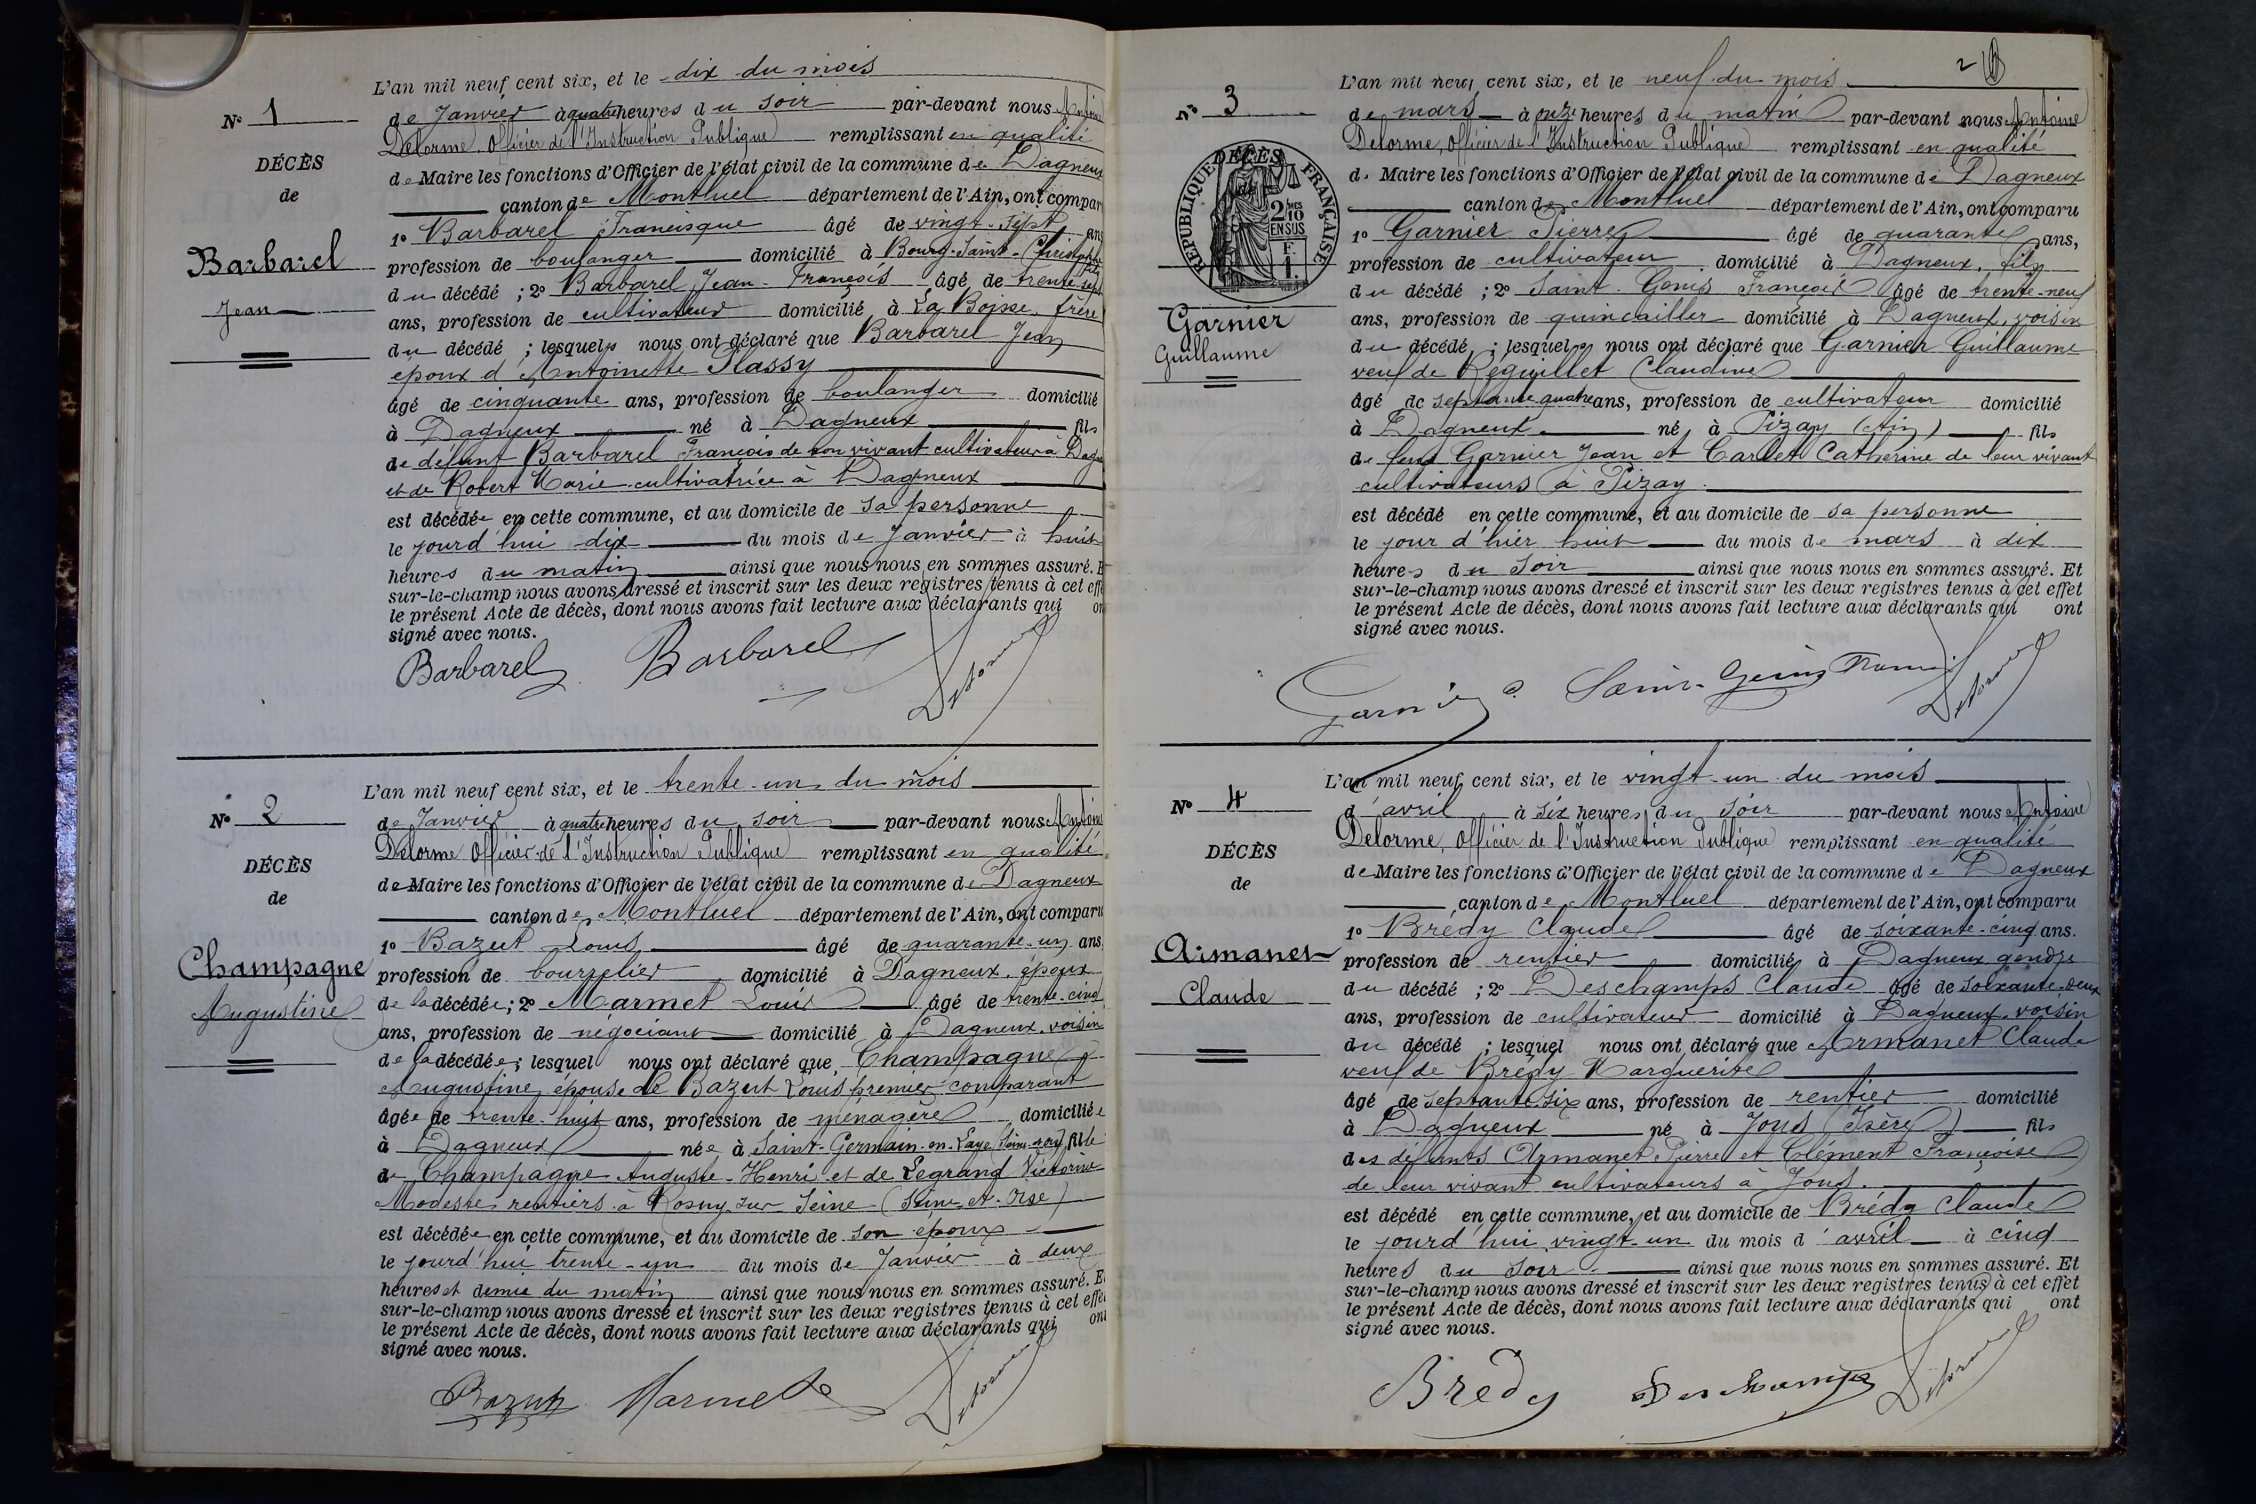 L'an mil neuf cent six, et le dix du mois
N° 1
de Janvier à quatre heures du soir par-devant nous Antoine
Delorme, Officier de l'Instruction Publique remplissant en qualité
DÉCÈS
de Maire les fonctions d'Officier de l'état civil de la commune de Dagneux
de
canton de Montluel département de l'Ain, ont compar
1° Barbarel Francisque âgé de vingt-sept ans
Barbarel
profession de boulanger domicilié à Bourg-Saint-Christophe fils
du décédé ; 2° Barbarel Jean-François âgé de trente-sept
Jean
ans, profession de cultivateur domicilié à La Boisse, frère
du décédé ; lesquels nous ont déclaré que Barbarel Jean
époux d'Antoinette Plassy
âgé de cinquante ans, profession de boulanger domicilié
à Dagneux né à Dagneux fils
de défunt Barbarel François de son vivant cultivateur à Dagn
et de Robert Marie cultivatrice à Dagneux
est décédé en cette commune, et au domicile de sa personne
le jourd'hui dix du mois de Janvier à huit
heures du matin ainsi que nous nous en sommes assuré. E
sur-le-champ nous avons dressé et inscrit sur les deux registres tenus à cet effe
le présent Acte de décès, dont nous avons fait lecture aux déclarants qui on
signé avec nous.
Barbarel Barbarel Delorme
L'an mil neuf cent six, et le trente-un du mois
N° 2
de Janvier à quatre heures du soir par-devant nous Antoine
Delorme Officier de l'Instruction Publique remplissant en qualité
DÉCÈS
de Maire les fonctions d'Officier de l'état civil de la commune de Dagneux
de
canton de Montluel département de l'Ain, ont comparu
1° Bazut Louis âgé de quarante-un ans
Champagne
profession de bourrelier domicilié à Dagneux, époux
Augustine
de la décédée ; 2° Marmet Louis âgé de trente-cinq
ans, profession de négociant domicilié à Dagneux, voisin
de la décédée ; lesquel nous ont déclaré que Champagne
Augustine épouse de Bazut Louis premier comparant
âgée de trente-huit ans, profession de ménagère domiciliée
à Dagneux née à Saint-Germain-en-Laye (Seine-et-Oise) fille
de Champagne Auguste-Henri et de Legrand Victorine
Modeste rentiers à Rosny sur Seine (Seine-et-Oise)
est décédée en cette commune, et au domicile de son époux
le jourd'hui trente-un du mois de Janvier à deux
heures et demie du matin ainsi que nous nous en sommes assuré. E
sur-le-champ nous avons dressé et inscrit sur les deux registres tenus à cet effe
le présent Acte de décès, dont nous avons fait lecture aux déclarants qui ont
signé avec nous.
Bazut Marmet Delorme
2
L'an mil neuf cent six, et le neuf du mois
N° 3
de mars à onze heures du matin par-devant nous Antoine
Delorme, Officier de l'Instruction Publique remplissant en qualité
de Maire les fonctions d'Officier de l'état civil de la commune de Dagneux
canton de Montluel département de l'Ain, ont comparu
DÉCÈS
de
RÉPUBLIQUE FRANÇAISE
2 mes
10
EN SUS
F.
1.
1° Garnier Pierre âgé de quarante ans,
profession de cultivateur domicilié à Dagneux, fils
du décédé ; 2° Saint-Genis François âgé de trente-neuf
Garnier
ans, profession de quincailler domicilié à Dagneux, voisin
Guillaume
du décédé ; lesquels nous ont déclaré que Garnier Guillaume
veuf de Reguillet Claudine
âgé de septante quatre ans, profession de cultivateur domicilié
à Dagneux né à Pizay (Ain) fils
de feus Garnier Jean et Carlet Catherine de leur vivant
cultivateurs à Pizay
est décédé en cette commune, et au domicile de sa personne
le jour d'hier huit du mois de mars à dix
heures du soir ainsi que nous nous en sommes assuré. Et
sur-le-champ nous avons dressé et inscrit sur les deux registres tenus à cet effet
le présent Acte de décès, dont nous avons fait lecture aux déclarants qui ont
signé avec nous.
Garnier P. Saint-Genis Delorme
L'an mil neuf cent six, et le vingt-un du mois
N° 4
d'avril à six heures du soir par-devant nous Antoine
Delorme, Officier de l'Instruction Publique remplissant en qualité
DÉCÈS
de Maire les fonctions d'Officier de l'état civil de la commune de Dagneux
de
canton de Montluel département de l'Ain, ont comparu
1° Brédy Claude âgé de soixante-cinq ans.
Armanet
profession de rentier domicilié à Dagneux gendre
Claude
du décédé ; 2° Deschamps Claude âgé de soixante-deux
ans, profession de cultivateur domicilié à Dagneux, voisin
du décédé ; lesquel nous ont déclaré que Armanet Claude
veuf de Brédy Marguerite
âgé de septante-six ans, profession de rentier domicilié
à Dagneux né à Jons (Isère) fils
des défunts Armanet Pierre et Clément Françoise
de leur vivant cultivateurs à Jons.
est décédé en cette commune, et au domicile de Brédy Claude
le jourd'hui vingt-un du mois d'avril à cinq
heures du soir ainsi que nous nous en sommes assuré. Et
sur-le-champ nous avons dressé et inscrit sur les deux registres tenus à cet effet
le présent Acte de décès, dont nous avons fait lecture aux déclarants qui ont
signé avec nous.
Brédy Deschamps Delorme